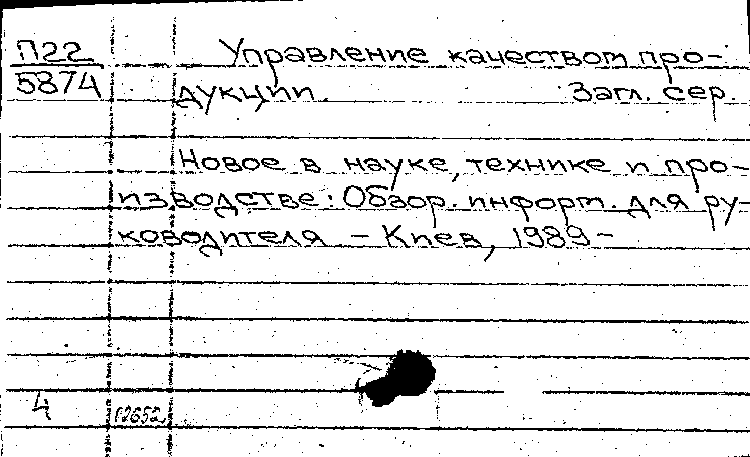 П22
5874
Управление качеством про-
дукции. Загл. сер.
Новое в науке, технике и про-
изводстве: Обзор. информ. для ру-
ководителя – Киев, 1989 –
4
12652